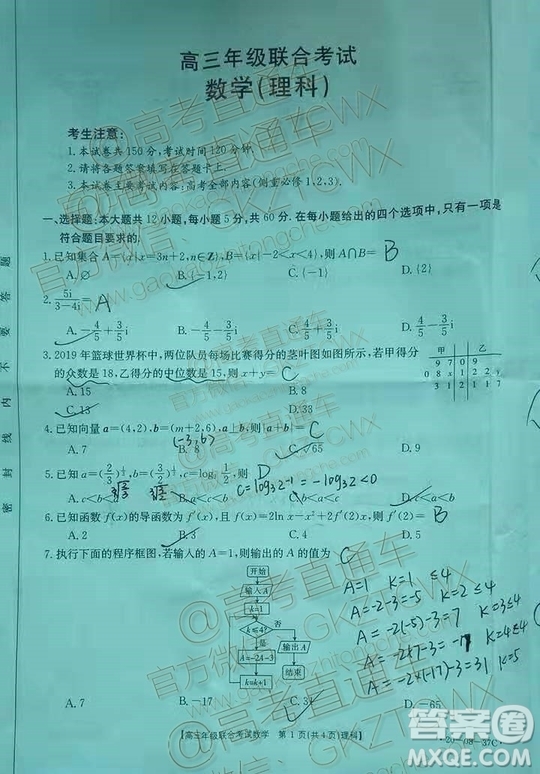 高三年级联合考试
数学(理科)
考生注意:
1.本试卷共150分,考试时间120分钟.
2.请将各题答案填写在答题卡上.
3.本试卷主要考试内容:高考全部内容(侧重必修1,2,3).
一、选择题:本大题共12小题,每小题5分,共60分.在每小题给出的四个选项中,只有一项是
符合题目要求的.
1.已知集合A={x|x=3n+2,n∈Z},B={x|-2<x<4},则A∩B= B
A.∅ B.{-1,2} C.{-1} D.{2}
2. 5i/(3-4i)= A
A.-4/5+3/5i B.-4/5-3/5i C.4/5+3/5i D.4/5-3/5i
3.2019年篮球世界杯中,两位队员每场比赛得分的茎叶图如图所示,若甲得分
的众数是18,乙得分的中位数是15,则x+y= C
甲 乙
9 7 0 9
0 8 x 1 2 y
3 1 2 1 1
A.15 B.14
C.13 D.10
4.已知向量a=(4,2),b=(m+2,6),a⊥b,则|a+b|= C
(-3,6)
A.7 B.8 C.√65 D.9
D
C=log₃2⁻¹=-log₃2<0
A.c<b<a D.c<a<b
6.已知函数f(x)的导函数为f′(x),且f(x)=2ln x-x²+2f′(2)x,则f′(2)= B
A.2 B.3 C.4 D.5
7.执行下面的程序框图,若输入的A=1,则输出的A的值为 C
开始
输入A
k=1
k≤4?
输出A
A=-2A-3
结束
k=k+1
A=1 k=1 ≤4
A=-2-3=-5 k=2≤4
A=-2(-5)-3=7 k=3≤4
A=-2×7-3=-17 k=4
A=-2×(-17)-3=31 k=5
A.7 B.-17 C.31 D.-65
【高三年级联合考试数学 第1页(共4页)理科】
·20-08-37C·
密 封 线 内 不 要 答 题
@高考直通车
官方微信:GKZTCWX
答案圈
MXQE.COM